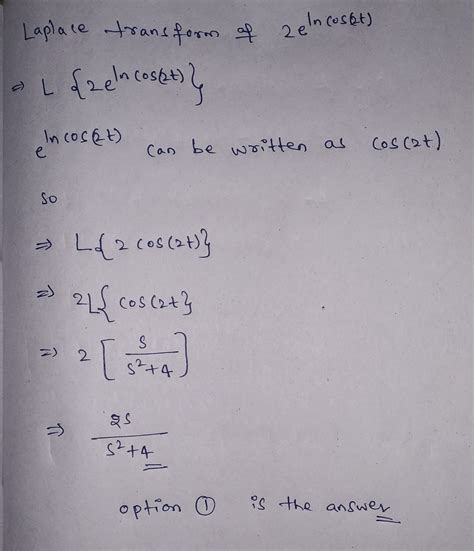 Laplace transform of 2e^ln cos(2t)
⇒ L {2e^ln cos(2t)}
e^ln cos(2t) can be written as cos(2t)
so
⇒ L{2 cos(2t)}
⇒ 2L{cos(2t}
⇒ 2 [s/s²+4]
⇒ 2s/s²+4
option ① is the answer